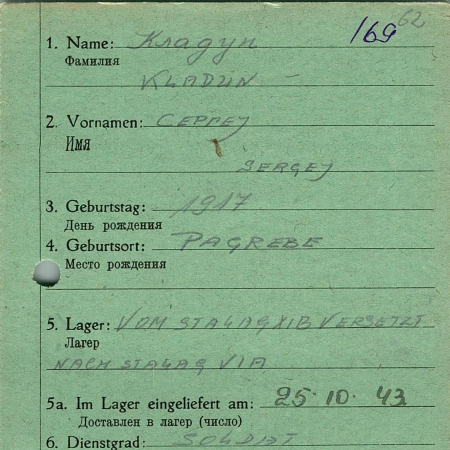 169 62
1. Name: Кладун
Фамилия
KLADUN
2. Vornamen: СЕРГЕJ
Имя
SERGEJ
3. Geburtstag: 1917
День рождения
4. Geburtsort: PAGREBE
Место рождения
5. Lager: VOM STALAG XIB VERSETZT
Лагер
NACH STALAG VIA
5a. Im Lager eingeliefert am: 25·10·43
Доставлен в лагер (число)
6. Dienstgrad: SOLDAT